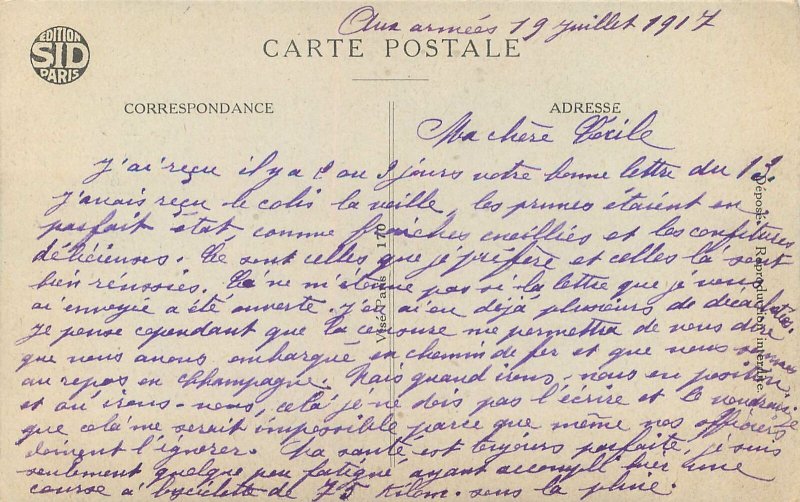 Aux armées 19 juillet 1917
EDITION
SID
PARIS
CARTE POSTALE
CORRESPONDANCE
ADRESSE
Ma chère Cécile
J'ai reçu il y a 8 ou 9 jours votre bonne lettre du 13.
J'avais reçu le colis la veille, les prunes étaient en
parfait état comme fraiches cueillies et les confitures
délicieuses. Cé sont celles que je préfère et celles là sont
bien réussies. Cé ne m'étonne pas si la lettre que je vous
ai envoyée a été ouverte. J'en ai eu déjà plusieurs de décachetées.
Je pense cependant que la censure me permettra de vous dire
que nous avons embarqué en chemin de fer et que nous sommes
au repos en Champagne. Mais quand irons-nous en position
et où irons-nous, celà je ne dois pas l'écrire et le voudrais-je
que celà me serait impossible parce que même nos officiers
doivent l'ignorer. Ma santé est toujours parfaite, je suis
seulement quelque peu fatigué, ayant accompli hier une
course à bicyclette de 75 kilom. sous la pluie.
Visé Paris 170
Déposé Reproduction interdite.